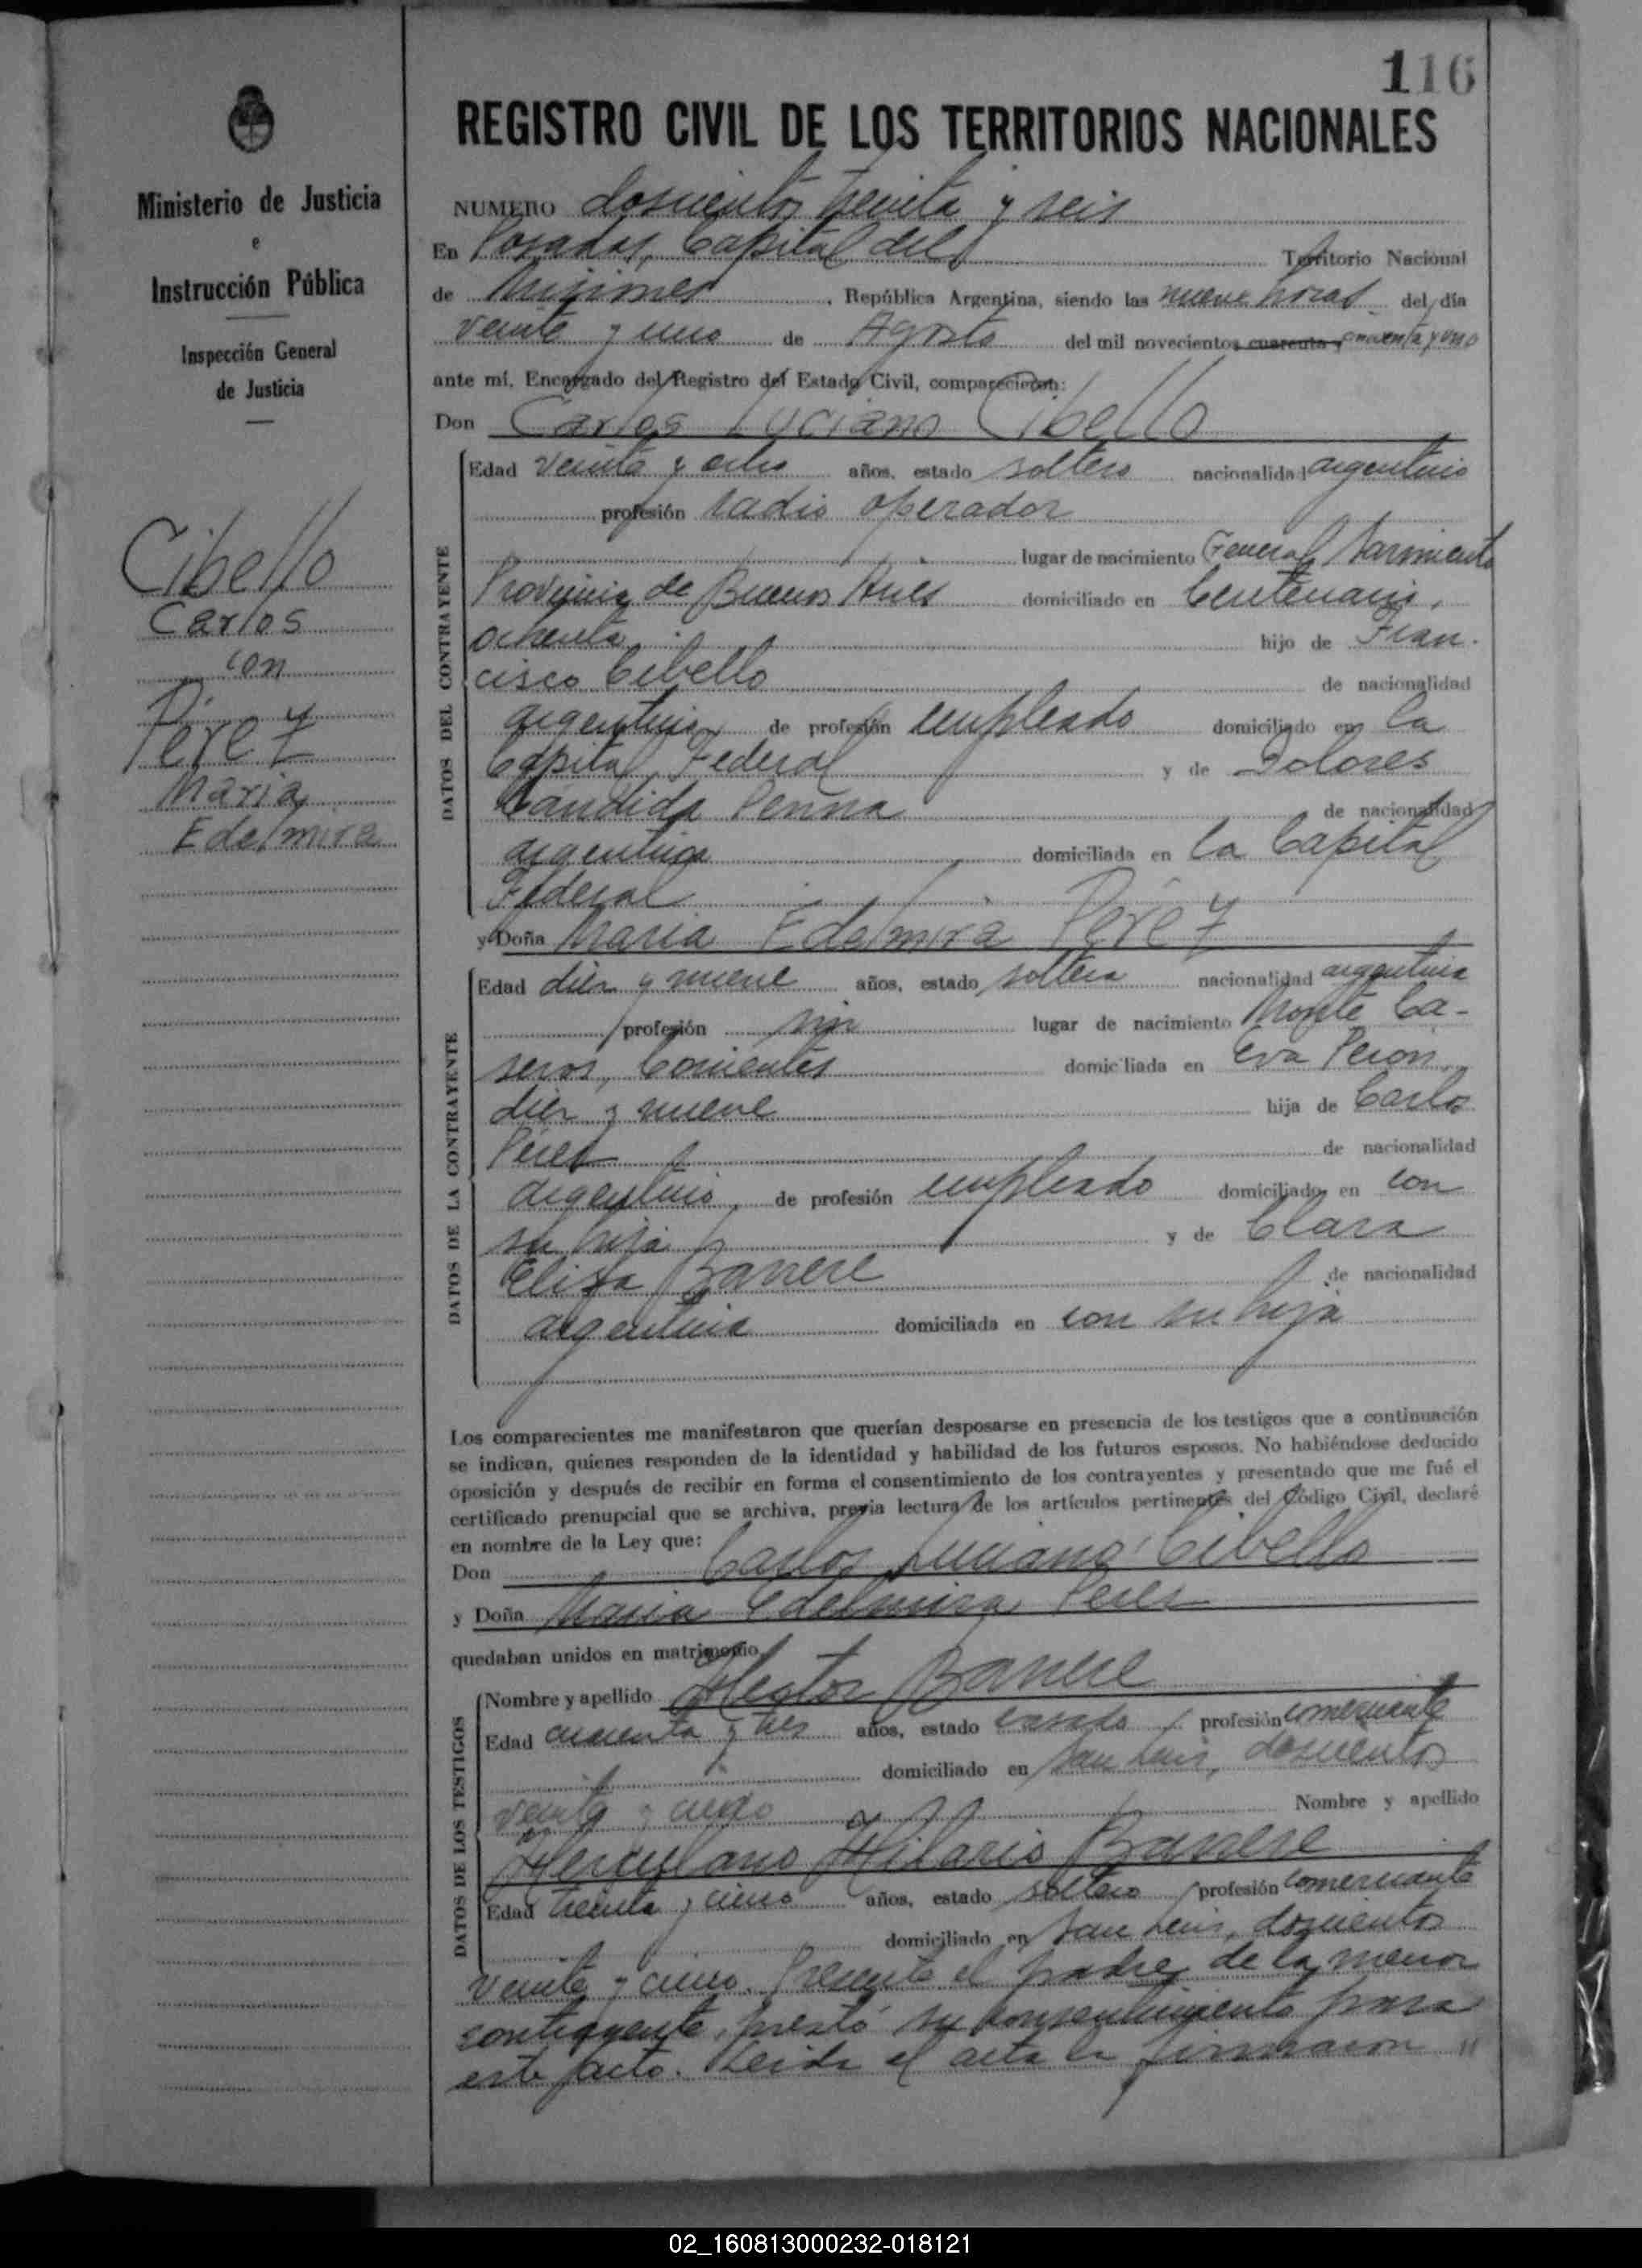 116
REGISTRO CIVIL DE LOS TERRITORIOS NACIONALES
Ministerio de Justicia
e
Instrucción Pública
Inspección General
de Justicia
Cibello
Carlos
con
Pérez
Maria
Edelmira
NUMERO doscientos treinta y seis
En Posadas, Capital del Territorio Nacional
de Misiones, República Argentina, siendo las nueve horas del día
veinte y uno de Agosto del mil novecientos cuarenta y cincuenta y uno
ante mí, Encargado del Registro del Estado Civil, comparecieron:
Don Carlos Luciano Cibello
DATOS DEL CONTRAYENTE
Edad veinte y ocho años, estado soltero nacionalidad argentino
profesión radio operador
lugar de nacimiento General Sarmiento
Provincia de Buenos Aires domiciliado en Centenario,
ochenta hijo de Fran-
cisco Cibello de nacionalidad
argentino de profesión empleado domiciliado en la
Capital Federal y de Dolores
Cándida Penna de nacionalidad
argentina domiciliada en la Capital
Federal
y Doña Maria Edelmira Pérez
DATOS DE LA CONTRAYENTE
Edad diez y nueve años, estado soltera nacionalidad argentina
profesión sin lugar de nacimiento Monte Ca-
seros, Corrientes domiciliada en Eva Perón,
diez y nueve hija de Carlos
Pérez de nacionalidad
argentino de profesión empleado domiciliado en con
su hija y de Clara
Elisa Barrere de nacionalidad
argentina domiciliada en con su hija
Los comparecientes me manifestaron que querían desposarse en presencia de los testigos que a continuación
se indican, quienes responden de la identidad y habilidad de los futuros esposos. No habiéndose deducido
oposición y después de recibir en forma el consentimiento de los contrayentes y presentado que me fué el
certificado prenupcial que se archiva, previa lectura de los artículos pertinentes del Código Civil, declaré
en nombre de la Ley que:
Don Carlos Luciano Cibello
y Doña Maria Edelmira Perez
quedaban unidos en matrimonio.
DATOS DE LOS TESTIGOS
Nombre y apellido Hector Barrere
Edad cuarenta y tres años, estado casado profesión comerciante
domiciliado en San Luis, doscientos
veinte y cinco Nombre y apellido
Herculano Hilario Barrere
Edad treinta y cinco años, estado soltero profesión comerciante
domiciliado en San Luis, doscientos
veinte y cinco. Presente el padre de la menor
contrayente, prestó su consentimiento para
este acto. Leida el acta la firmaron "
02_160813000232-018121